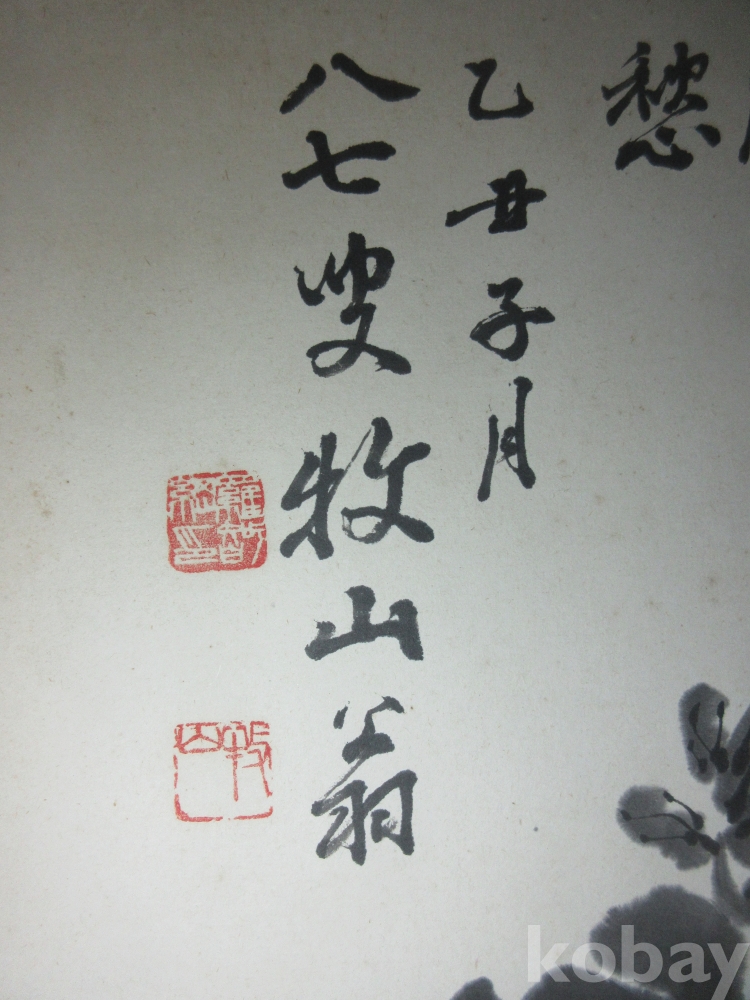 愁
乙丑子月
八七叟牧山翁
牧山
kobay